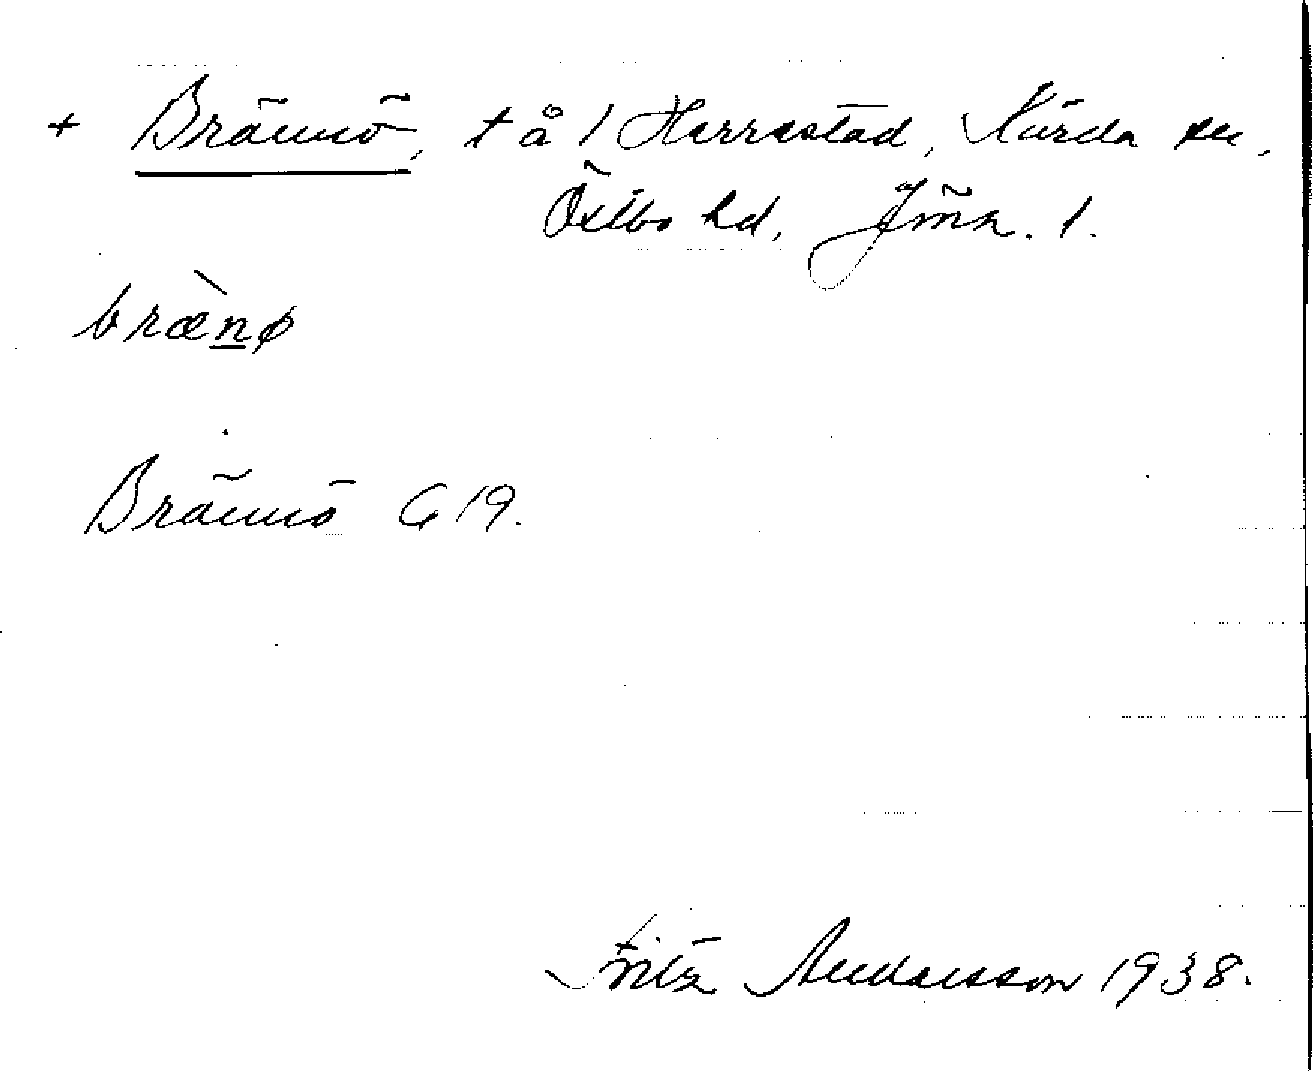 + Brännö, t å 1 Herrestad, Kärda sn,
Östbo hd, Jmk. l.
brænø
Brännö G 19.
Fritz Andersson 1938.